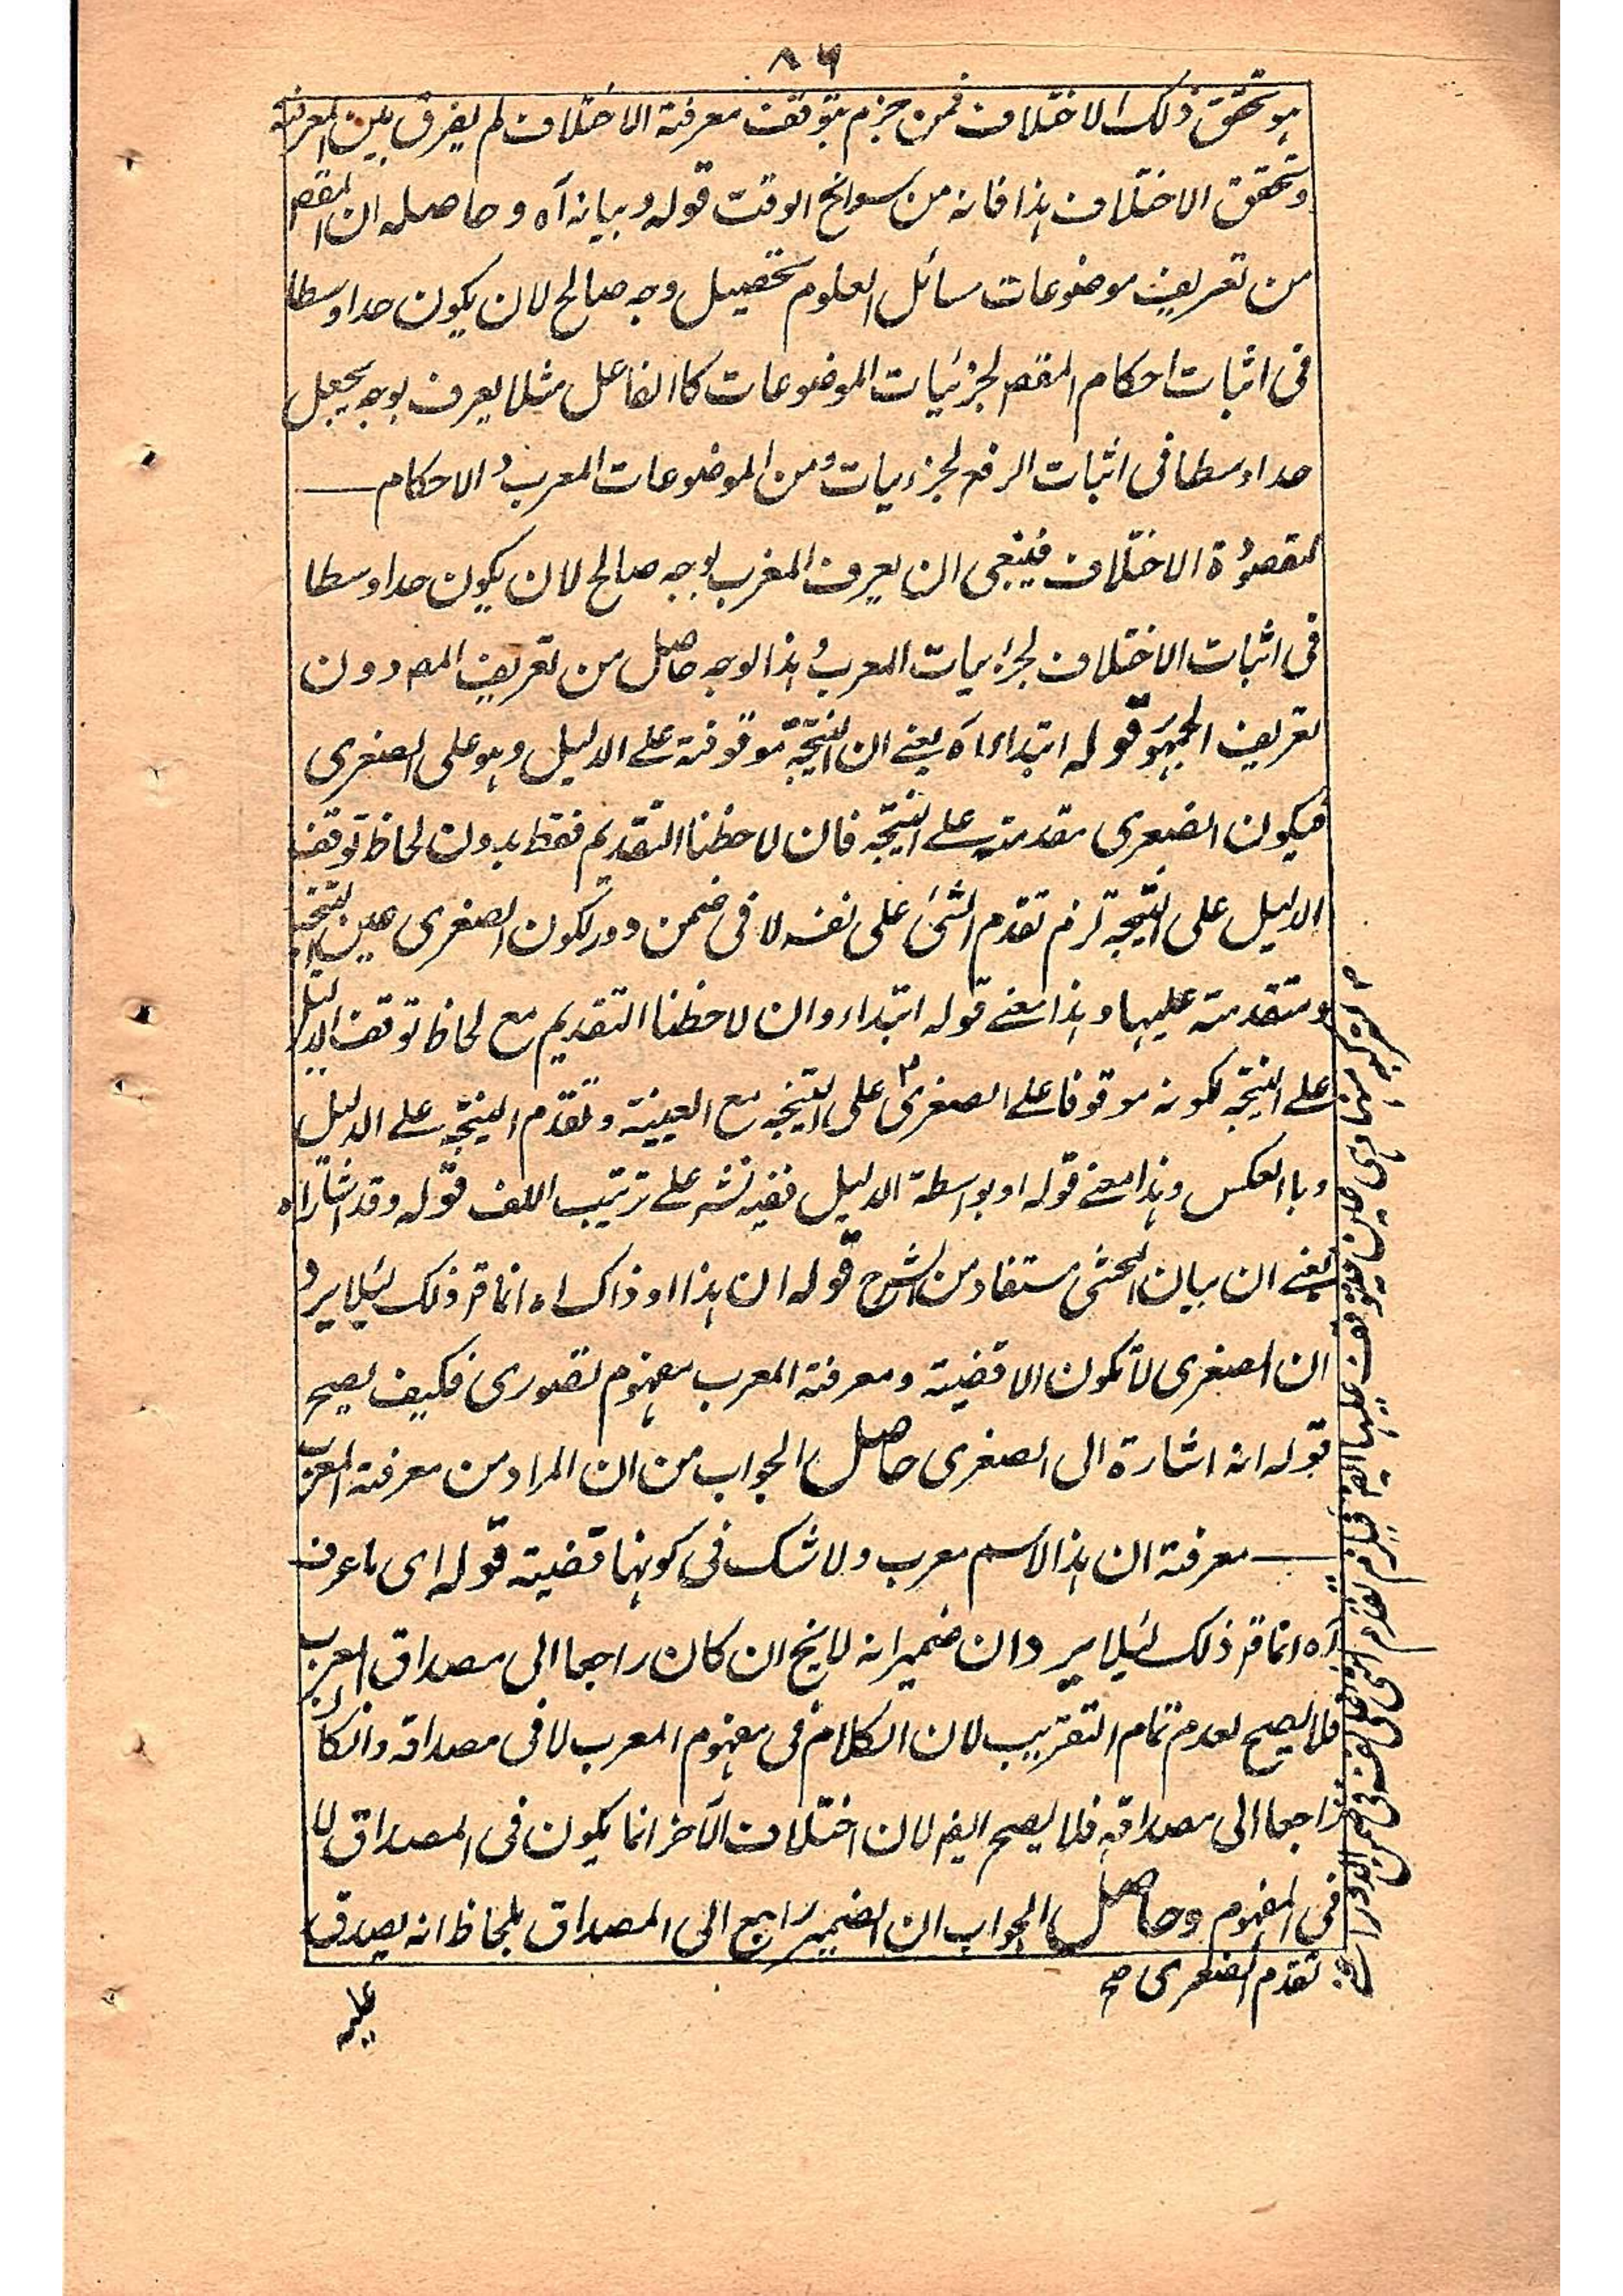 ٨٦
هو تحقق ذلك الاختلاف فمن جزم بتوقف معرفة الاختلاف لم يفرق بين المعرفة
وتحقق الاختلاف هذا فانه من سوانح الوقت قوله وبيانه آه وحاصله ان المقصر
من تعريف موضوعات مسائل العلوم تحصيل وجه صالح لان يكون حدا وسطا
فى اثبات احكام المقصر لجزئيات الموضوعات كا الفاعل مثلا يعرف بوجه يجعل
حدا وسطا فى اثبات الرفع لجزءيات ومن الموضوعات المعرب والاحكام
لمقصودة الاختلاف فينبغى ان يعرف المعرب بوجه صالح لان يكون حدا وسطا
فى اثبات الاختلاف لجزءيات المعرب وهذا الوجه حاصل من تعريف المصر دون
تعريف الجمهور قوله ابتداء آه يعنے ان النتيجة موقوفة علے الدليل وهو على الصغرى
فيكون الصغرى مقدمة علے النتيجة فان لاحظنا التقديم فقط بدون لحاظ توقف
الدليل على النتيجة لزم تقدم الشئ على نفسه لا فى ضمن دور لكون الصغرى عين النتيجة
ومتقدمة عليها وهذا معنے قوله ابتداء وان لاحظنا التقديم مع لحاظ توقف الدليل
علے النتيجة لكونه موقوفا علے الصغرى ٢ على النتيجة مع العينية وتقدم النتيجة علے الدليل
وبا العكس وهذا معنے قوله او بواسطة الدليل ففيه نشر علے ترتيب اللف قوله وقد اشار آه
يعنے ان بيان المحشى مستفاد من الشرح قوله ان هذا او ذاك اه انما قر ذلك لئيلا يرد
ان الصغرى لا تكون الا قضية ومعرفة المعرب مفهوم تصورى فكيف يصح
قوله انه اشارة الى الصغرى حاصل الجواب من ان المراد من معرفة المعرب
معرفة ان هذا الاسم معرب ولا شك فى كونها قضية قوله اى ما عرف
آه انما قر ذلك لئيلا يرد ان ضمير انه لا يخ ان كان راجعا الى مصداق المعرب
فلا يصح لعدم تمام التقريب لان الكلام فى مفهوم المعرب لا فى مصداقه وانكان
راجعا الى مصداقه فلا يصح ايضر لان اختلاف الآخر انما يكون فى المصداق لا
فى المفهوم وحاصل الجواب ان الضمير راجع الى المصداق بلحاظ انه يصدق
تقدم الصغرى صح
عليه